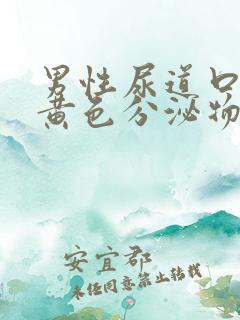 男性尿道口
黄色分泌物
安宜郡
未经同意禁止转载